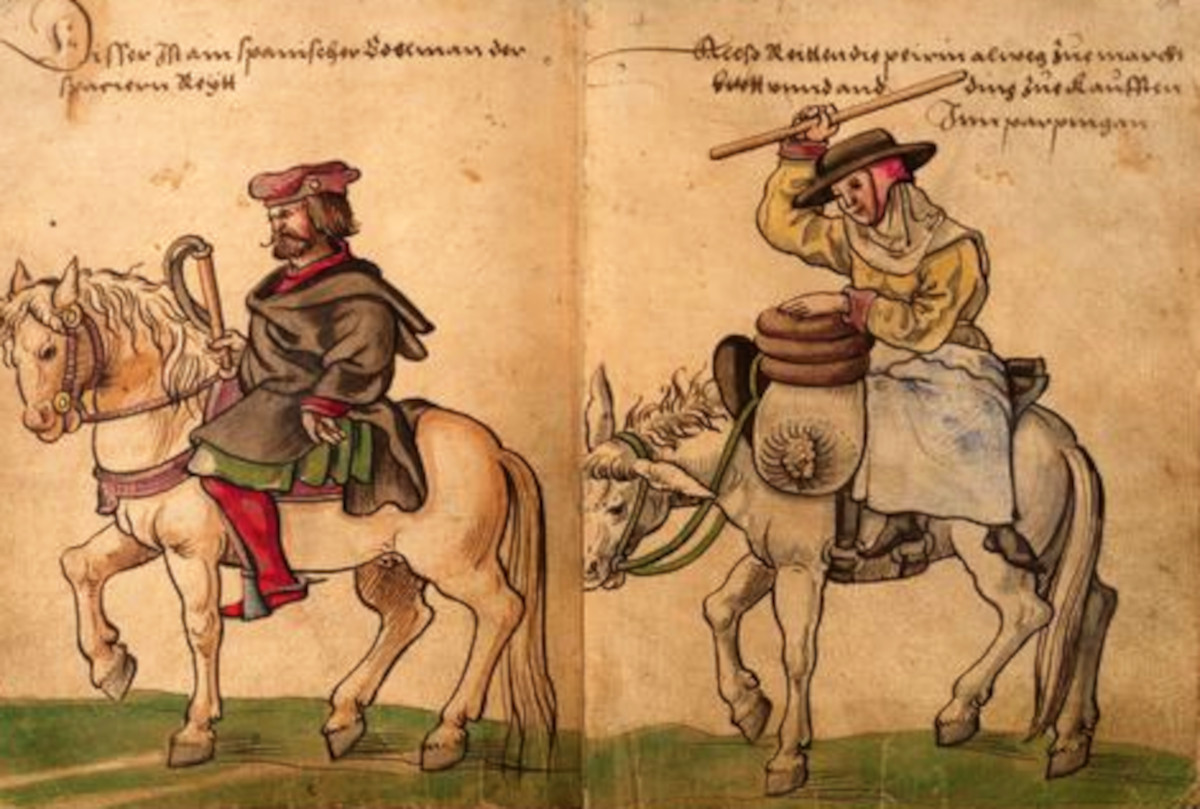 Disser Ist ain spanischer Edelman der
spacieren Reytt
Also Reitten die peirin alweg zue marckt
brott unnd and ding zue kauffen
Inn parpingan